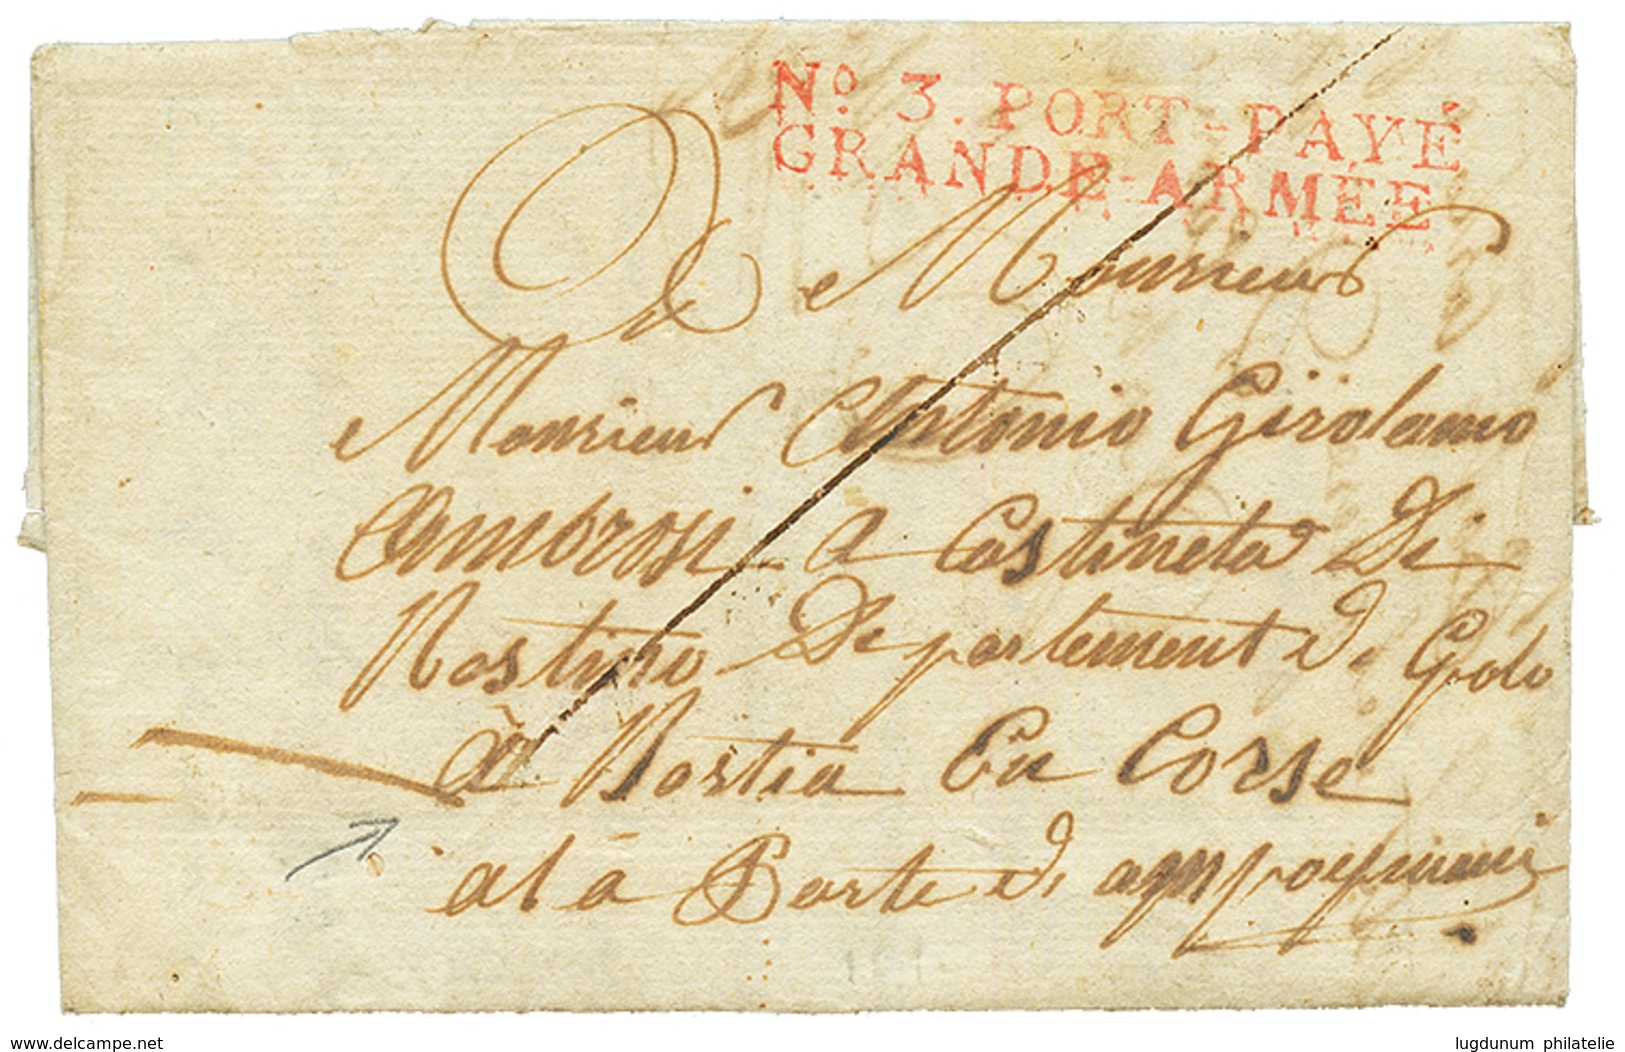 No. 3. PORT-PAYÉ
GRANDE-ARMÉE
A Monsieur
Monsieur Antonio Girolamo
Ambrosi a Castineta Di
Rostino Departement de Golo
à Bastia En Corse
www.delcampe.net
lugdunum philatelie